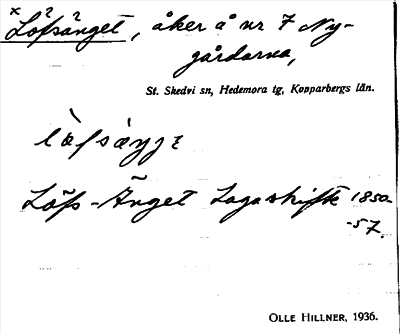 × Löfsänget, åker å nr 7 Ny-
gårdarna,
St. Skedvi sn, Hedemora tg, Kopparbergs län.
Löfs-Änget Laga skifte 1850-
-57.
OLLE HILLNER, 1936.